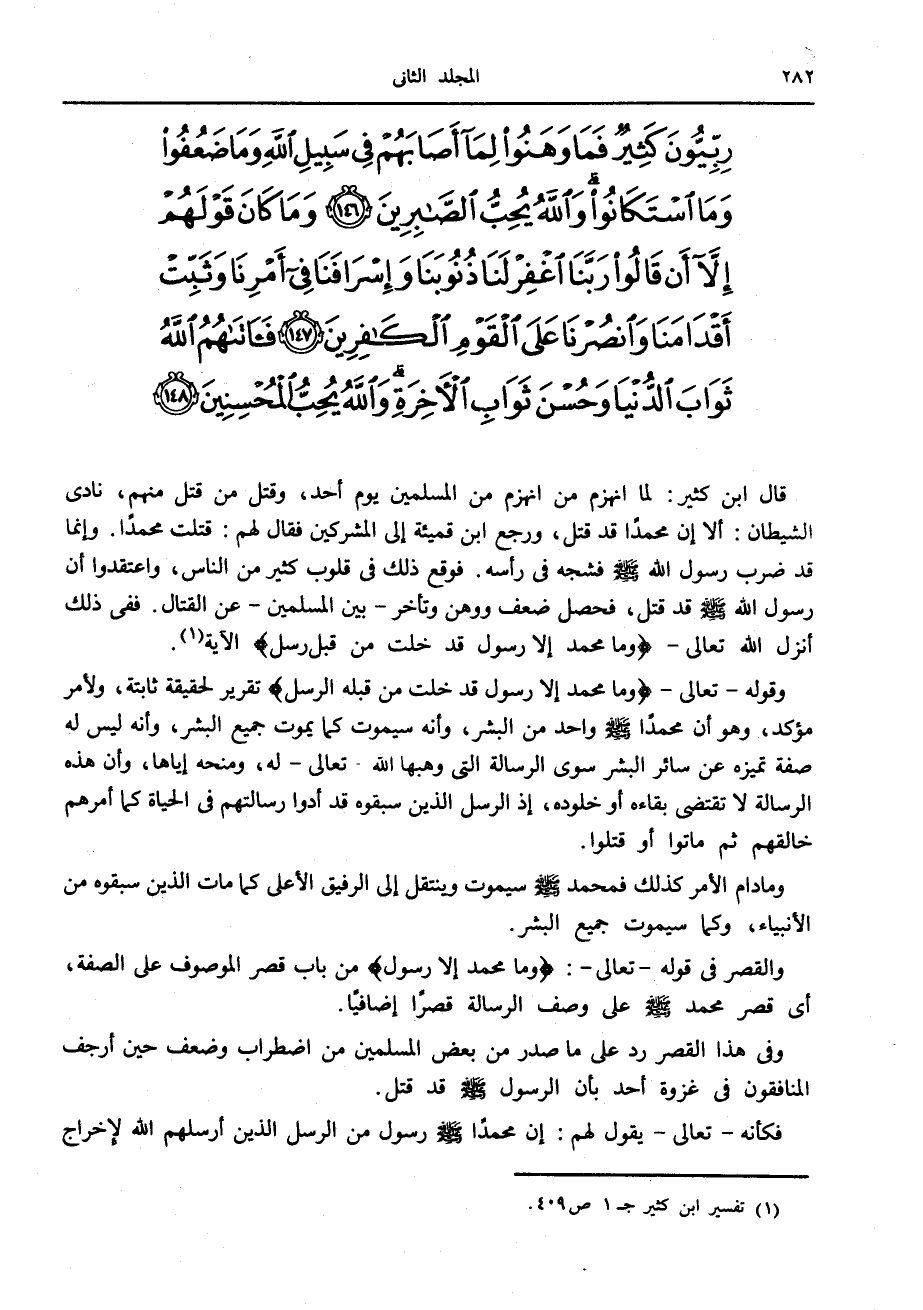 ٢٨٢ المجلد الثانى
رِبِّيُّونَ كَثِيرٌ فَمَا وَهَنُوا۟ لِمَآ أَصَابَهُمْ فِى سَبِيلِ ٱللَّهِ وَمَا ضَعُفُوا۟
وَمَا ٱسْتَكَانُوا۟ ۗ وَٱللَّهُ يُحِبُّ ٱلصَّـٰبِرِينَ ١٤٦ وَمَا كَانَ قَوْلَهُمْ
إِلَّآ أَن قَالُوا۟ رَبَّنَا ٱغْفِرْ لَنَا ذُنُوبَنَا وَإِسْرَافَنَا فِىٓ أَمْرِنَا وَثَبِّتْ
أَقْدَامَنَا وَٱنصُرْنَا عَلَى ٱلْقَوْمِ ٱلْكَـٰفِرِينَ ١٤٧ فَـَٔاتَىٰهُمُ ٱللَّهُ
ثَوَابَ ٱلدُّنْيَا وَحُسْنَ ثَوَابِ ٱلْـَٔاخِرَةِ ۗ وَٱللَّهُ يُحِبُّ ٱلْمُحْسِنِينَ ١٤٨
قال ابن كثير : لما انهزم من انهزم من المسلمين يوم أحد، وقتل من قتل منهم، نادى
الشيطان : ألا إن محمدًا قد قتل، ورجع ابن قميئة إلى المشركين فقال لهم : قتلت محمدًا. وإنما
قد ضرب رسول الله ﷺ فشجه فى رأسه. فوقع ذلك فى قلوب كثير من الناس، واعتقدوا أن
رسول الله ﷺ قد قتل، فحصل ضعف ووهن وتأخر – بين المسلمين – عن القتال. ففى ذلك
أنزل الله تعالى – ﴿وما محمد إلا رسول قد خلت من قبل رسل﴾ الآية(١).
وقوله – تعالى – ﴿وما محمد إلا رسول قد خلت من قبله الرسل﴾ تقرير لحقيقة ثابتة، ولأمر
مؤكد، وهو أن محمدًا ﷺ واحد من البشر، وأنه سيموت كما يموت جميع البشر، وأنه ليس له
صفة تميزه عن سائر البشر سوى الرسالة التى وهبها الله - تعالى – له، ومنحه إياها، وأن هذه
الرسالة لا تقتضى بقاءه أو خلوده، إذ الرسل الذين سبقوه قد أدوا رسالتهم فى الحياة كما أمرهم
خالقهم ثم ماتوا أو قتلوا.
ومادام الأمر كذلك فمحمد ﷺ سيموت وينتقل إلى الرفيق الأعلى كما مات الذين سبقوه من
الأنبياء، وكما سيموت جميع البشر.
والقصر فى قوله –تعالى– : ﴿وما محمد إلا رسول﴾ من باب قصر الموصوف على الصفة،
أى قصر محمد ﷺ على وصف الرسالة قصرًا إضافيًا.
وفى هذا القصر رد على ما صدر من بعض المسلمين من اضطراب وضعف حين أرجف
المنافقون فى غزوة أحد بأن الرسول ﷺ قد قتل.
فكأنه – تعالى – يقول لهم : إن محمدًا ﷺ رسول من الرسل الذين أرسلهم الله لإخراج
(١) تفسير ابن كثير جـ ١ ص٤٠٩.